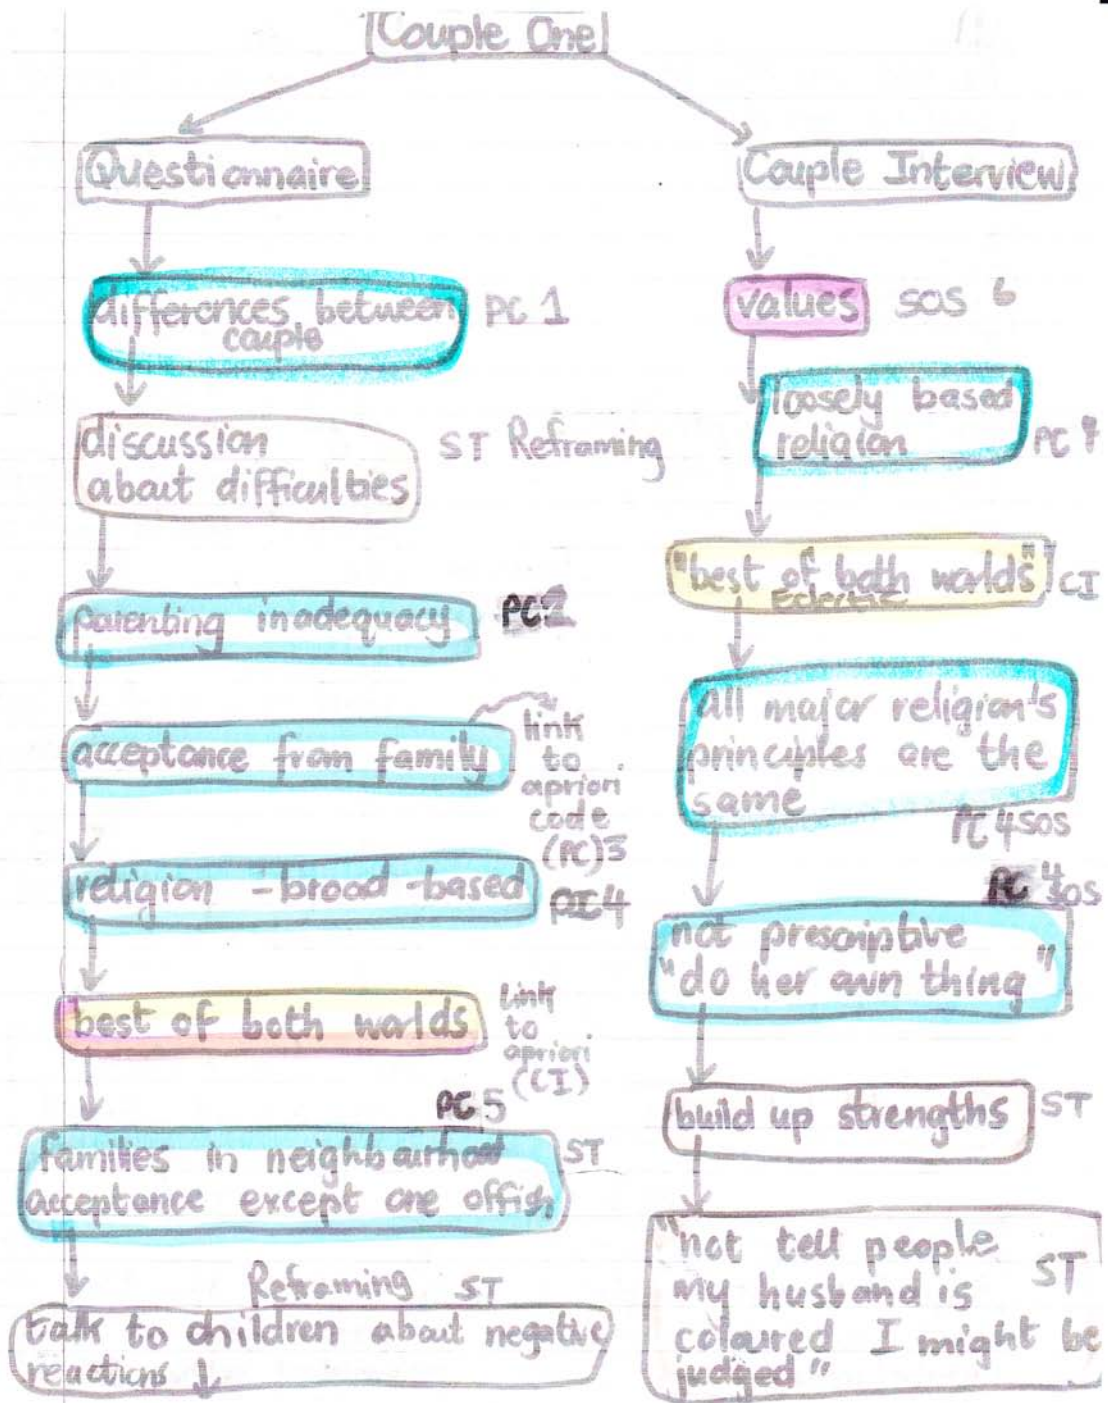 Couple One
Questionnaire
differences between
couple
PC 1
discussion
about difficulties
ST Reframing
parenting inadequacy
PC2
acceptance from family
link
to
apriori
code
(PC)3
religion - broad - based
PC4
best of both worlds
link
to
apriori
(CI)
PC 5
families in neighbourhood
acceptance except one offish
ST
Reframing ST
talk to children about negative
reactions
Couple Interview
values
SOS 6
loosely based
religion
PC
"best of both worlds"
Eclectic
CI
all major religion's
principles are the
same
PC 4 SOS
PC 4
SOS
not prescriptive
"do her own thing"
build up strengths
ST
"not tell people
my husband is
coloured I might be
judged"
ST